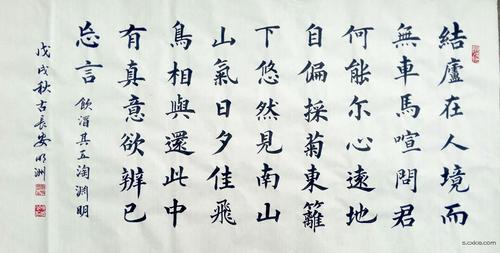 結廬在人境而
無車馬喧問君
何能尔心遠地
自偏採菊東籬
下悠然見南山
山氣日夕佳飛
鳥相與還此中
有真意欲辨已
忘言
飲酒其五陶渊明
戊戌秋古長安明洲